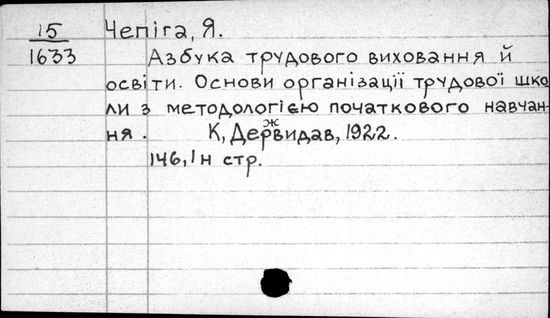 15 Чепіга, Я.
1633 Азбука трудового виховання й
освіти. Основи організації трудової шко
ли з методологією початкового навчан-
ня. К, Держвидав, 1922.
146, 1н стр.